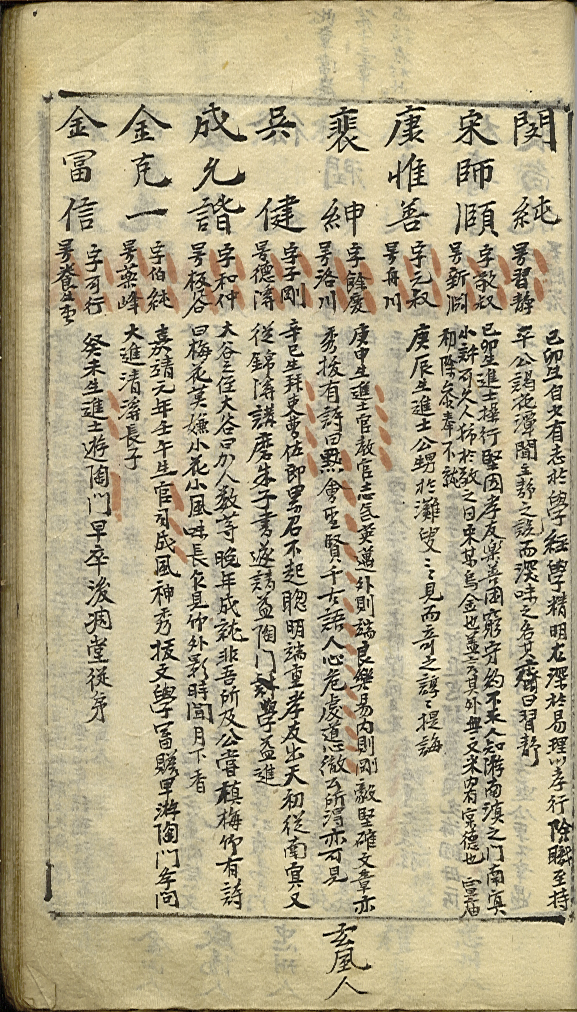 閔純
號習靜
己卯生自少有志於學 經學精明尤深於易理以孝行除職至持
平公謁花潭聞主靜之說而深味之名其齋曰習靜
宋師頤
字敬叔
號新淵
己卯生進士操行堅固孝友樂善困窮守約不求人知游南溟之門南冥
初除參奉不就
康惟善
字元叔
號舟川
庚辰生進士公甥於灘叟〻見而奇之諄〻提誨
裵紳
字餘慶
號洛川
庚申生進士官教官志氣英邁外則端良樂易內則剛毅堅確文章亦
秀拔有詩曰默會聖賢千古語人心危處道心微公所得亦可見
玄風人
吳健
字子剛
號德溪
辛巳生拜吏曹佐郎累召不起聰明端重孝友出天初從南冥又
從錦溪講磨朱子書遂請益陶門 學益進
成允諧
字和仲
號板谷
大谷三侄大谷曰分人數等晚年成就非吾所及公嘗植梅竹有詩
曰梅花莫嫌小花小風味長乍見竹外影時聞月下香
金克一
字伯純
號藥峰
嘉靖元年壬午生官司成風神秀拔文學富贍早游陶門 學問
大進清溪長子
金富信
字可行
號養正堂
癸未生進士游陶門早卒後凋堂從弟